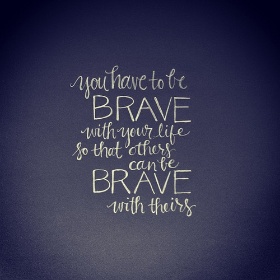 you have to be
BRAVE
with your life
so that others
can be
BRAVE
with theirs